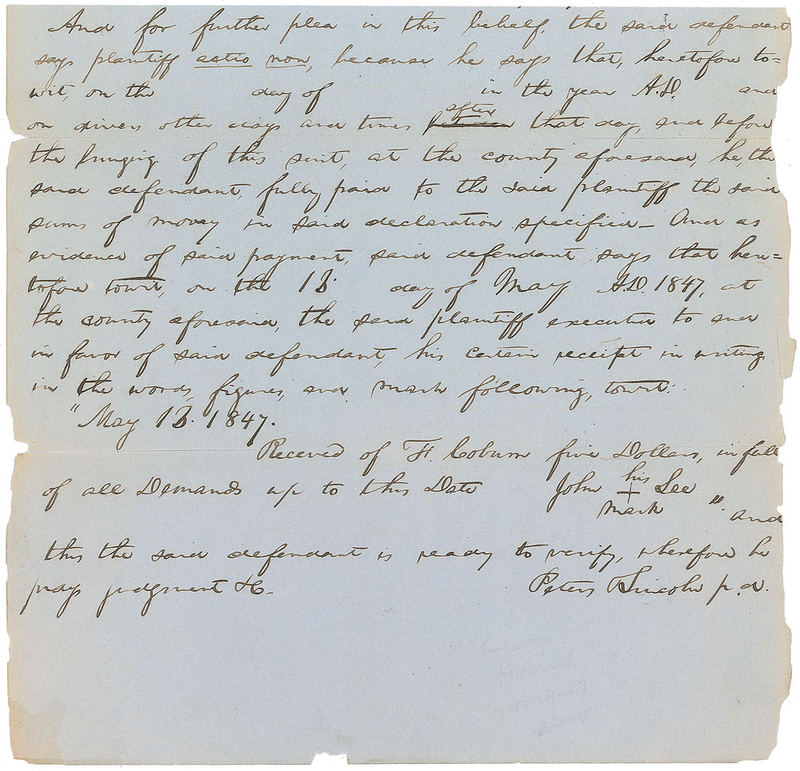 And for further plea in this behalf, the said defendant
says plaintiff actio non, because he says that, heretofore to=
wit, on the day of in the year A.D. and
after
on divers other days and times between that day, and before
the bringing of this suit, at the county aforesaid, he, the
said defendant, fully paid to the said plaintiff the said
sums of money in said declaration specified— And as
evidence of said payment, said defendant says that here=
tofore towit, on the 13. day of May A.D. 1847, at
the county aforesaid, the said plaintiff executed to and
in favor of said defendant, his certain receipt in writing
in the words, figures, and mark following, towit:
"May 13. 1847.
Received of F. Coburn five Dollars, in full
of all Demands up to this Date John his + mark Lee" and
this the said defendant is ready to verify, wherefore he
prays judgment &c. Peters & Lincoln p.d.